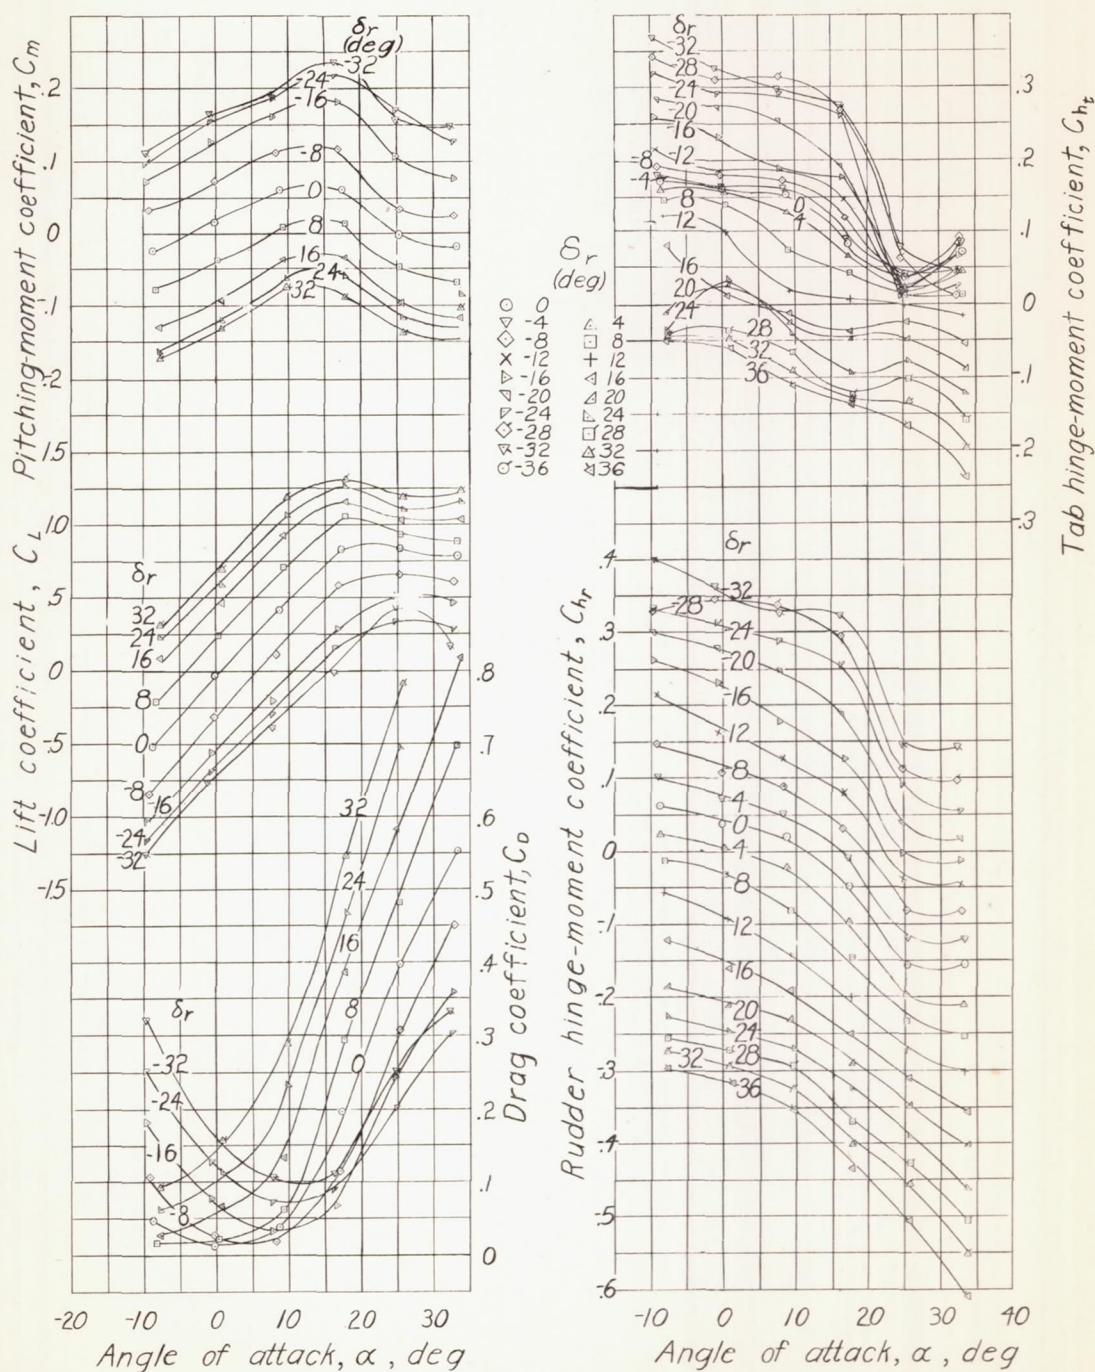 Pitching-moment coefficient, Cm
.2
.1
0
.1
.2
δr
(deg)
-32
-24
-16
-8
0
8
16
24
32
Lift coefficient, CL
1.5
1.0
.5
0
-.5
-1.0
-1.5
δr
32
24
16
8
0
-8
-16
-24
-32
Drag coefficient, CD
.8
.7
.6
.5
.4
.3
.2
.1
0
32
24
16
8
0
δr
-32
-24
-16
-8
-20 -10 0 10 20 30
Angle of attack, α, deg
δr
(deg)
0
-4 4
-8 8
-12 12
-16 16
-20 20
-24 24
-28 28
-32 32
-36 36
Tab hinge-moment coefficient, Cht
.3
.2
.1
0
-.1
-.2
-.3
δr
-32
-28
-24
-20
-16
-12
-8
-4
0
4
8
12
16
20
24
28
32
36
Rudder hinge-moment coefficient, Chr
.4
.3
.2
.1
0
-.1
-.2
-.3
-.4
-.5
-.6
δr
-32
-28
-24
-20
-16
-12
-8
-4
0
4
8
12
16
20
24
28
32
36
-10 0 10 20 30 40
Angle of attack, α, deg